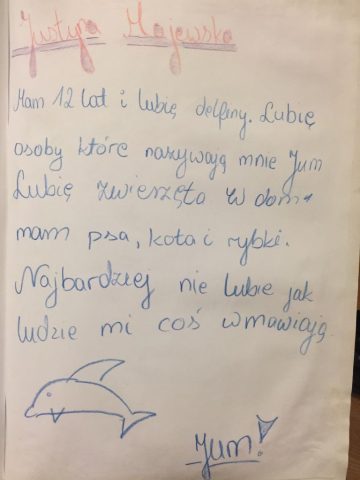 Justyna Majewska
Mam 12 lat i lubię delfiny. Lubię
osoby które nazywają mnie Jum
Lubię zwierzęta w dom
mam psa, kota i rybki.
Najbardziej nie lubie jak
ludzie mi coś wmawiają.
Jum!